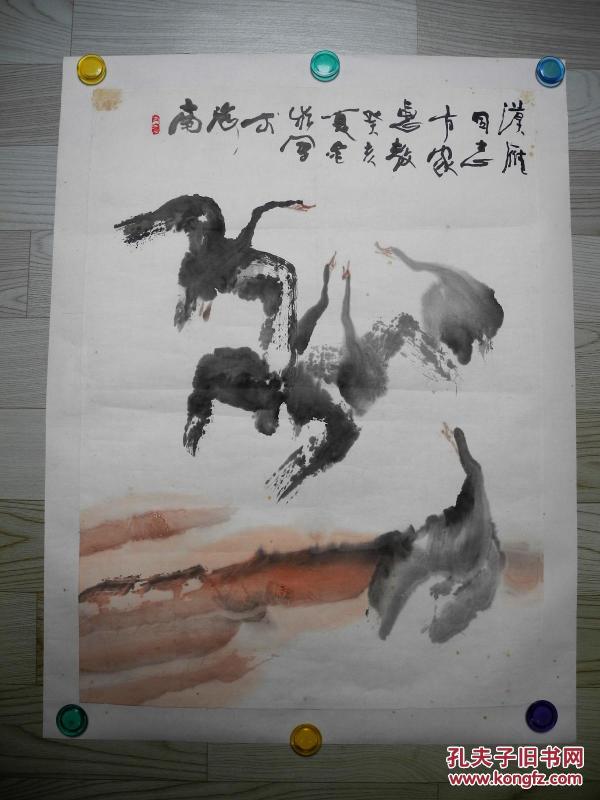 漠雁
同志
方家
惠教
癸亥
夏
写
于
海
南
孔夫子旧书网
www.kongfz.com